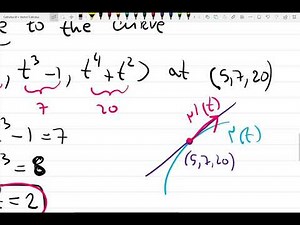 to the curve
, t³-1, t⁴+t²) at (5,7,20)
7 20
r'(t)
r(t)
(5,7,20)
³-1=7
³=8
t=2